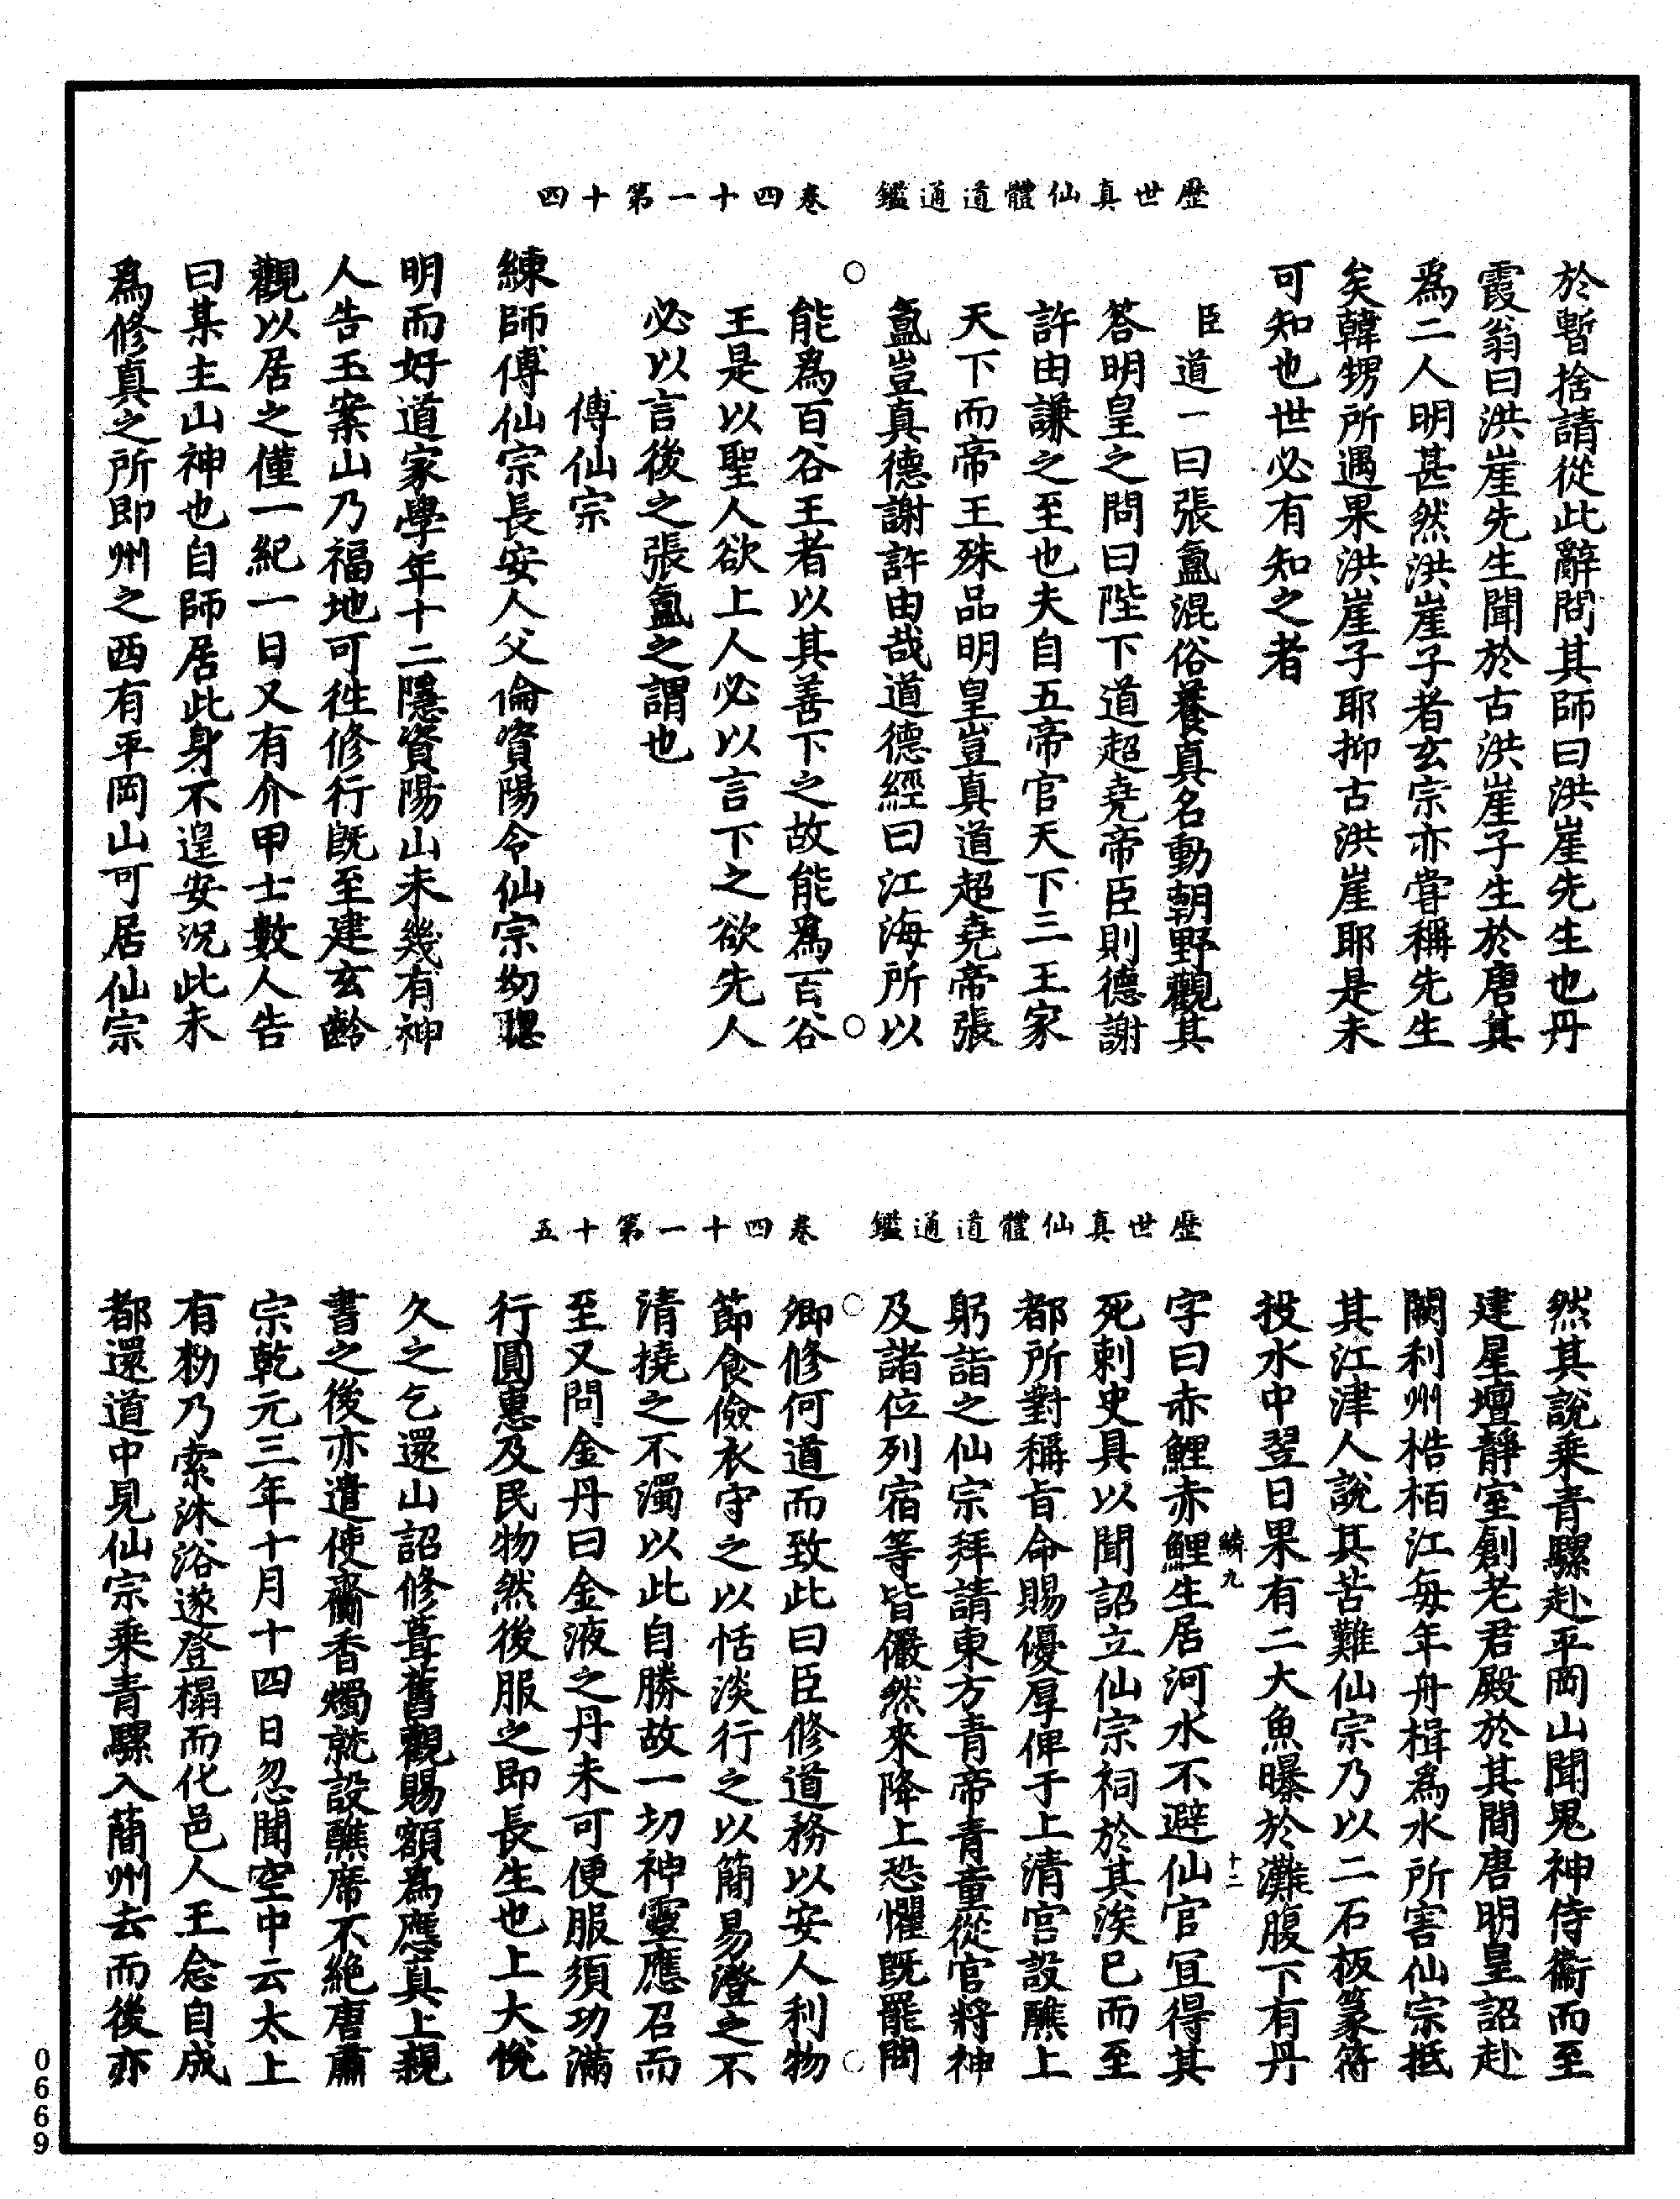 歷世真仙體道通鑑　卷四十一第十四
於暫捨請從此辭問其師曰洪崖先生也丹
霞翁曰洪崖先生聞於古洪崖子生於唐其
爲二人明甚然洪崖子者玄宗亦嘗稱先生
矣韓甥所遇果洪崖子耶抑古洪崖耶是未
可知也世必有知之者
臣道一曰張氳混俗養真名動朝野觀其
答明皇之問曰陛下道超堯帝臣則德謝
許由謙之至也夫自五帝官天下三王家
天下而帝王殊品明皇豈真道超堯帝張
氳豈真德謝許由哉道德經曰江海所以
能爲百谷王者以其善下之故能爲百谷
王是以聖人欲上人必以言下之欲先人
必以言後之張氳之謂也
傅仙宗
練師傅仙宗長安人父倫資陽令仙宗幼聰
明而好道家學年十二隱資陽山未幾有神
人告玉案山乃福地可往修行既至建玄齡
觀以居之僅一紀一日又有介甲士數人告
曰某主山神也自師居此身不遑安況此未
爲修真之所即州之西有平岡山可居仙宗
歷世真仙體道通鑑　卷四十一第十五
然其說乘青騾赴平岡山聞鬼神侍衛而至
建星壇靜室創老君殿於其間唐明皇詔赴
闕利州桔栢江每年舟楫為水所害仙宗抵
其江津人說其苦難仙宗乃以二石板篆符
投水中翌日果有二大魚曝於灘腹下有丹
字曰赤鯉赤鯉生居河水不避仙官宜得其
死刺史具以聞詔立仙宗祠於其涘已而至
都所對稱旨命賜優厚俾于上清宫設醮上
躬詣之仙宗拜請東方青帝青童從官將神
及諸位列宿等皆儼然來降上恐懼既罷問
卿修何道而致此曰臣修道務以安人利物
節食儉衣守之以恬淡行之以簡易澄之不
清撓之不濁以此自勝故一切神靈應召而
至又問金丹曰金液之丹未可便服須功滿
行圓惠及民物然後服之即長生也上大悅
久之乞還山詔修葺舊觀賜額為應真上親
書之後亦遣使齎香燭就設醮席不絕唐肅
宗乾元三年十月十四日忽聞空中云太上
有勑乃索沐浴遂登榻而化邑人王念自成
都還道中見仙宗乘青騾入蕳州去而後亦
鱗九
十二
0669